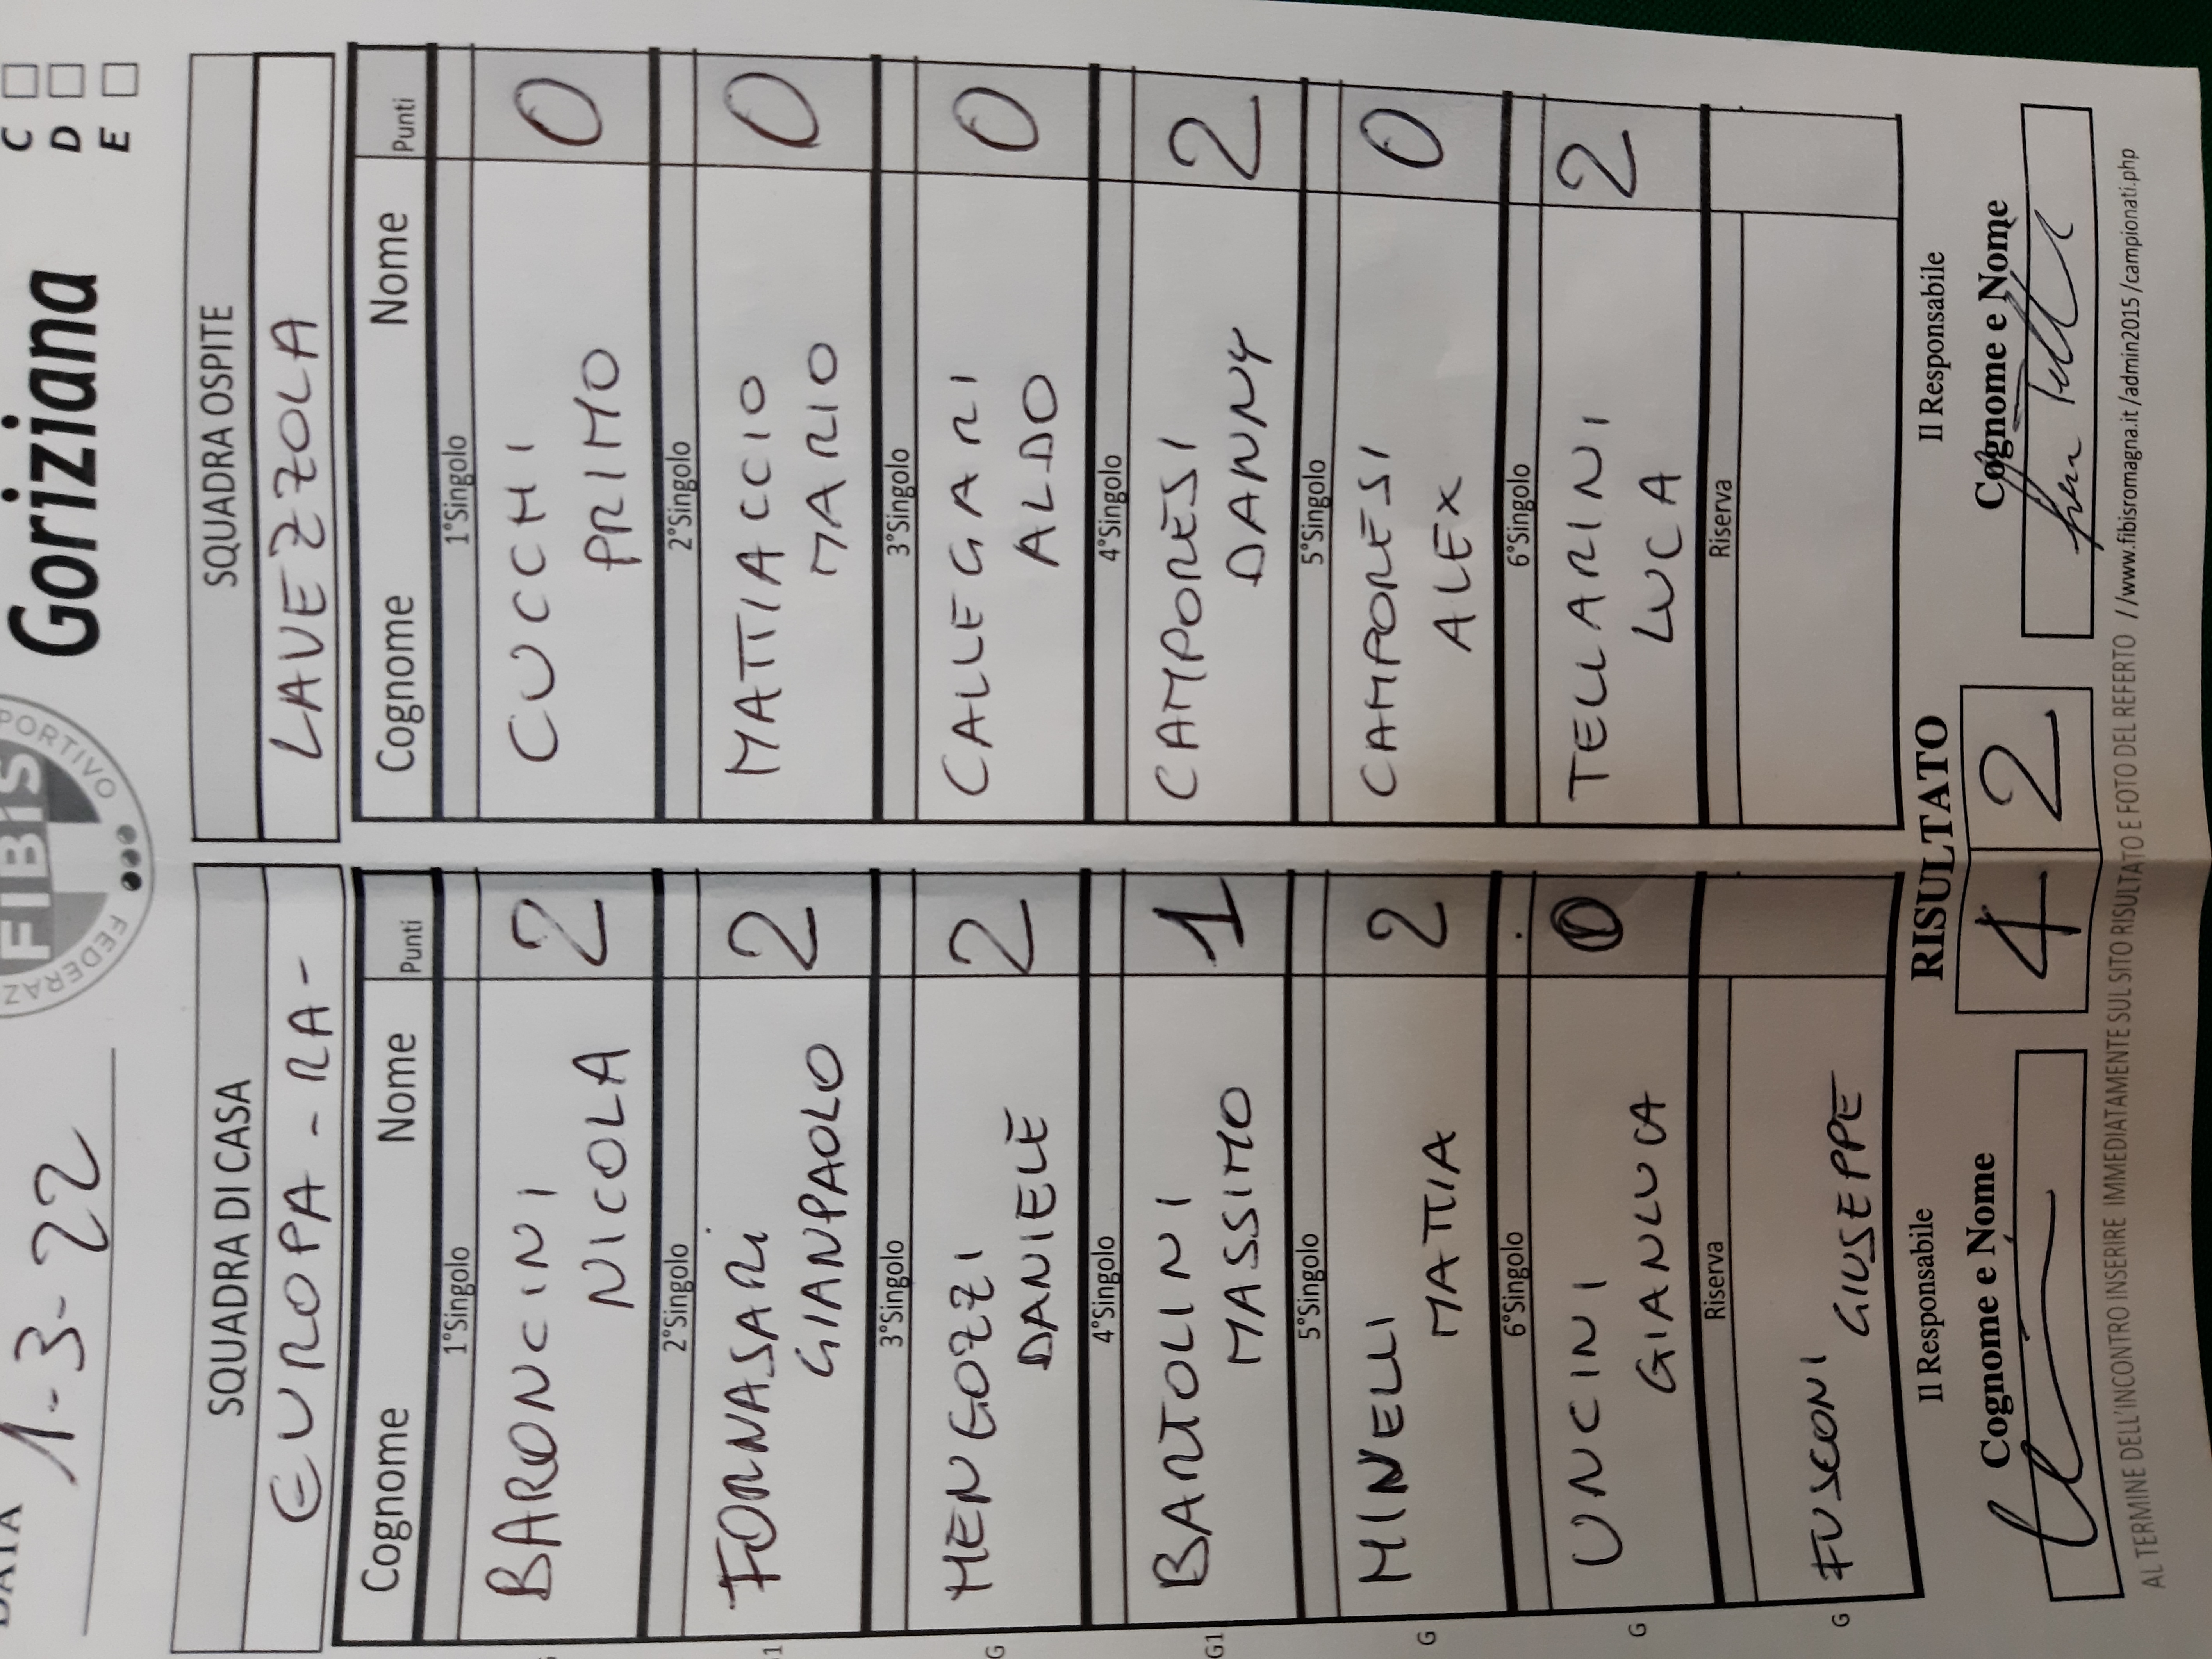 Goriziana
C
D
E
FIBIS
PORTIVO
FEDERAZ
1-3-22
SQUADRA DI CASA
EUROPA - RA -
Cognome Nome Punti
1°Singolo
BARONCINI
NICOLA 2
2°Singolo
FORNASARi
GIANPAOLO 2
3°Singolo
MENGOZZI
DANIELE 2
4°Singolo
BARTOLINI
MASSIMO 1
5°Singolo
MINELLI
MATTIA 2
6°Singolo
UNCINI
GIANLUCA 0
Riserva
FUSCONI
GIUSEPPE
SQUADRA OSPITE
LAVEZZOLA
Cognome Nome Punti
1°Singolo
CUCCHI
PRIMO 0
2°Singolo
MATTIACCIO
MARIO 0
3°Singolo
CALLEGARI
ALDO 0
4°Singolo
CAMPORESI
DANNY 2
5°Singolo
CAMPORESI
ALEX 0
6°Singolo
TELLARINI
LUCA 2
Riserva
G1
G
G1
G
G
G
Il Responsabile
Cognome e Nome
RISULTATO
4 2
Il Responsabile
Cognome e Nome
AL TERMINE DELL'INCONTRO INSERIRE IMMEDIATAMENTE SUL SITO RISULTATO E FOTO DEL REFERTO //www.fibisromagna.it/admin2015/campionati.php